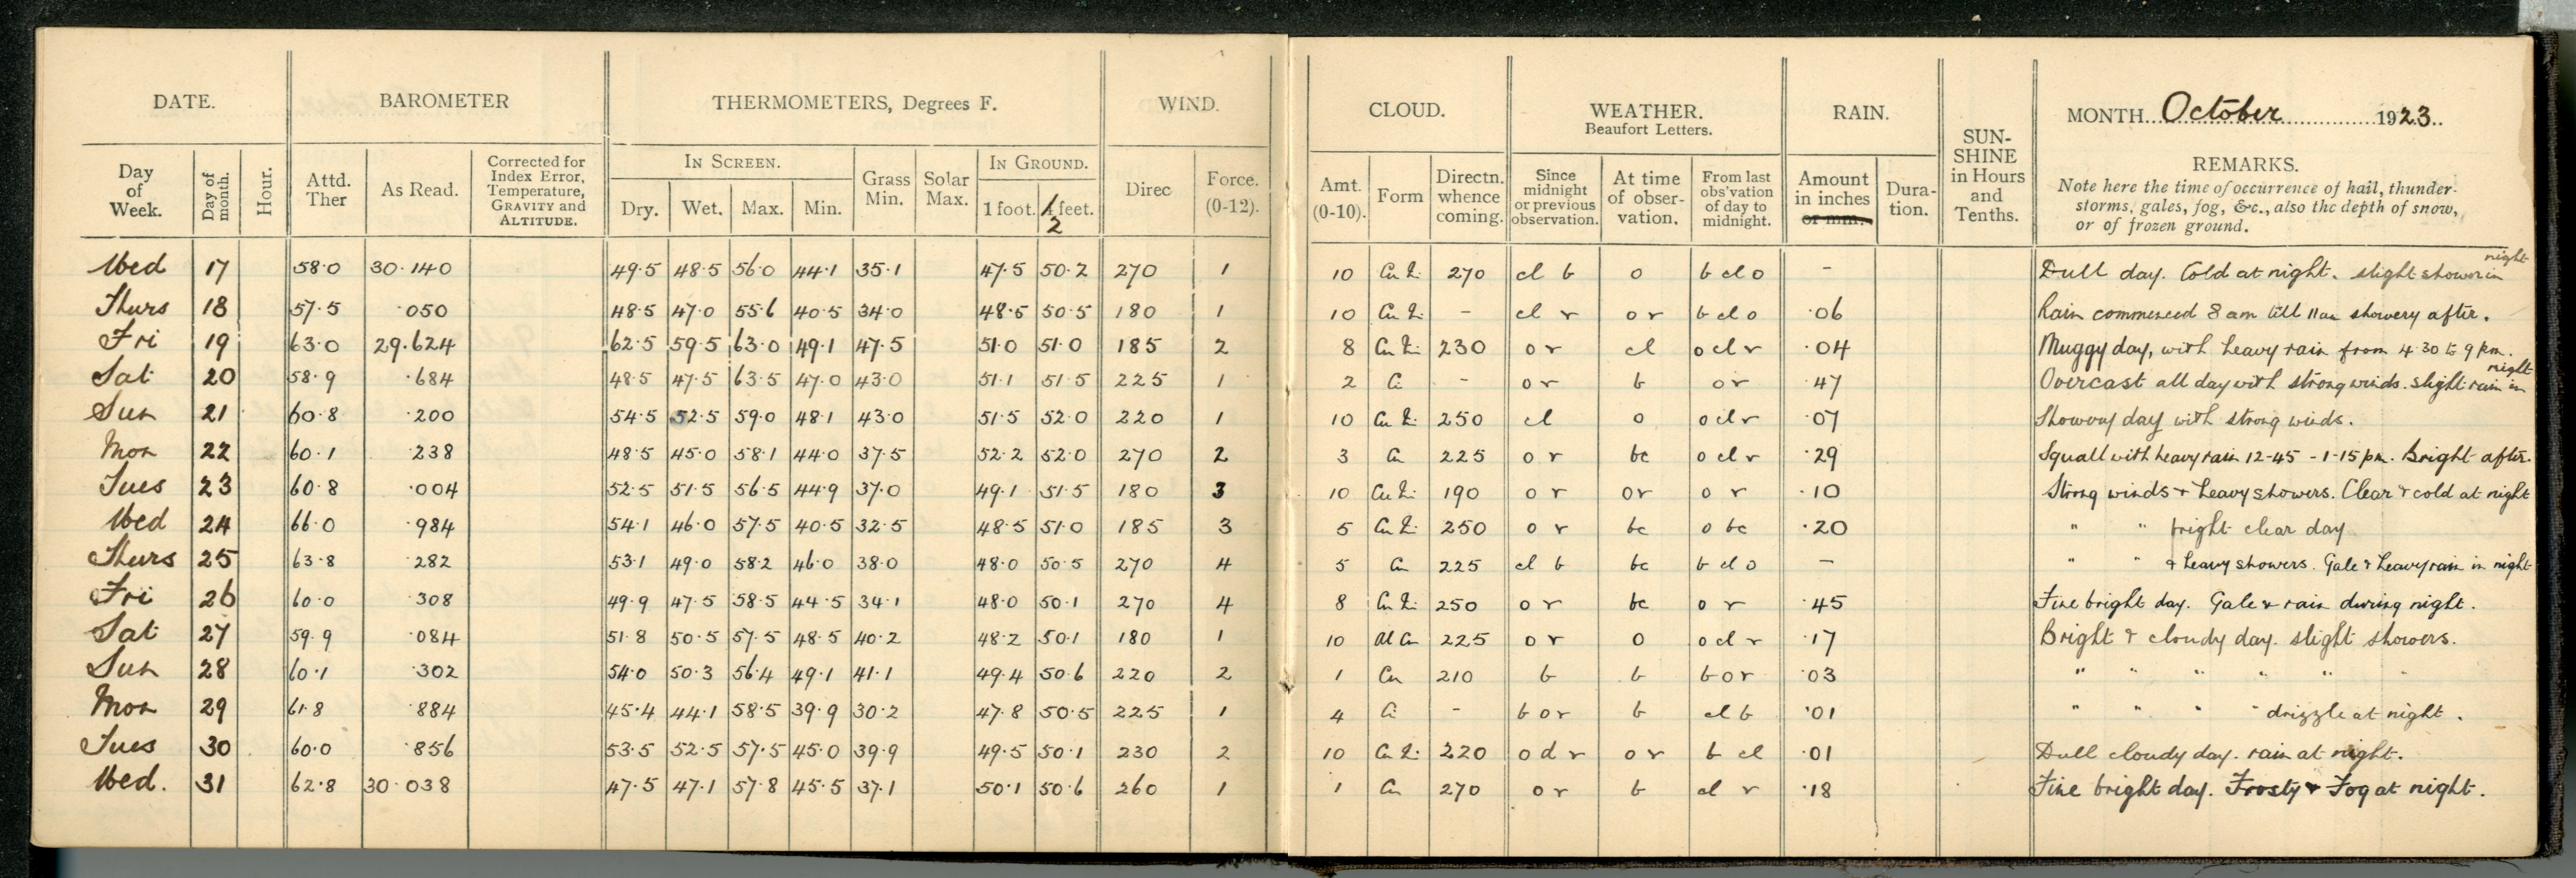 DATE. BAROMETER THERMOMETERS, Degrees F. WIND. CLOUD. WEATHER. Beaufort Letters. RAIN. SUN-SHINE in Hours and Tenths. MONTH October 1923
Day of Week. Day of month. Hour. Attd. Ther As Read. Corrected for Index Error, Temperature, GRAVITY and ALTITUDE. IN SCREEN. Dry. Wet. Max. Min. Grass Min. Solar Max. IN GROUND. 1 foot. 2 feet. Direc Force. (0-12). Amt. (0-10). Form Directn. whence coming. Since midnight or previous observation. At time of obser-vation. From last obs'vation of day to midnight. Amount in inches or mm. Dura-tion. REMARKS.
Note here the time of occurrence of hail, thunder-
storms, gales, fog, &c., also the depth of snow,
or of frozen ground.
Wed 17 58.0 30.140 49.5 48.5 56.0 44.1 35.1 47.5 50.2 270 1 10 270 cl b o b cl o - Dull day. Cold at night. slight shower in night
Thurs 18 57.5 .050 48.5 47.0 55.6 40.5 34.0 48.5 50.5 180 1 10 - cl r o r b cl o .06 Rain commenced 8 am till 11 am showery after.
Fri 19 63.0 29.624 62.5 59.5 63.0 49.1 47.5 51.0 51.0 185 2 8 230 o r cl o cl r .04 Muggy day, with heavy rain from 4.30 to 9 pm.
Sat 20 58.9 .684 48.5 47.5 63.5 47.0 43.0 51.1 51.5 225 1 2 Ci - o r b o r .47 Overcast all day with strong winds. slight rain in night
Sun 21 60.8 .200 54.5 52.5 59.0 48.1 43.0 51.5 52.0 220 1 10 250 cl o o cl r .07 Showery day with strong winds.
Mon 22 60.1 .238 48.5 45.0 58.1 44.0 37.5 52.2 52.0 270 2 3 Cu 225 o r bc o cl r .29 Squall with heavy rain 12-45 - 1-15 pm. Bright after.
Tues 23 60.8 .004 52.5 51.5 56.5 44.9 37.0 49.1 51.5 180 3 10 190 o r or o r .10 Strong winds & heavy showers. Clear & cold at night
Wed 24 66.0 .984 54.1 46.0 57.5 40.5 32.5 48.5 51.0 185 3 5 250 o r bc o bc .20 " " bright clear day
Thurs 25 63.8 .282 53.1 49.0 58.2 46.0 38.0 48.0 50.5 270 4 5 Cu 225 cl b bc b cl o - " " & heavy showers. Gale & heavy rain in night
Fri 26 60.0 .308 49.9 47.5 58.5 44.5 34.1 48.0 50.1 270 4 8 250 o r bc o r .45 Fine bright day. Gale & rain during night.
Sat 27 59.9 .084 51.8 50.5 57.5 48.5 40.2 48.2 50.1 180 1 10 Al Cu 225 o r o o cl r .17 Bright & cloudy day. slight showers.
Sun 28 60.1 .302 54.0 50.3 56.4 49.1 41.1 49.4 50.6 220 2 1 Cu 210 b b b o r .03 " " " " " "
Mon 29 61.8 .884 45.4 44.1 58.5 39.9 30.2 47.8 50.5 225 1 4 Ci - b o r b cl b .01 " " " " drizzle at night.
Tues 30 60.0 .856 53.5 52.5 57.5 45.0 39.9 49.5 50.1 230 2 10 220 o d r o r b cl .01 Dull cloudy day. rain at night.
Wed. 31 62.8 30.038 47.5 47.1 57.8 45.5 37.1 50.1 50.6 260 1 1 Cu 270 o r b cl r .18 Fine bright day. Frosty & Fog at night.